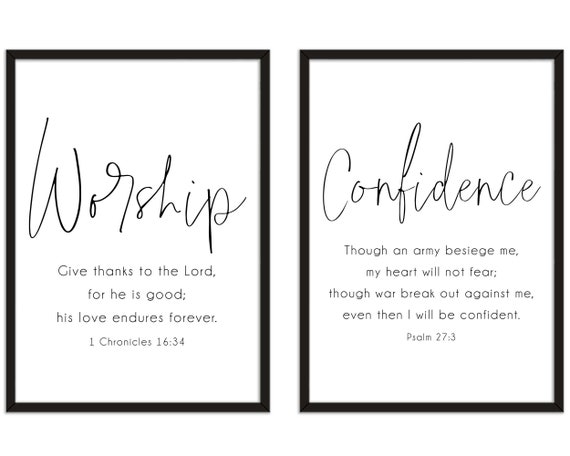 Worship
Give thanks to the Lord,
for he is good;
his love endures forever.
1 Chronicles 16:34
Confidence
Though an army besiege me,
my heart will not fear;
though war break out against me,
even then I will be confident.
Psalm 27:3